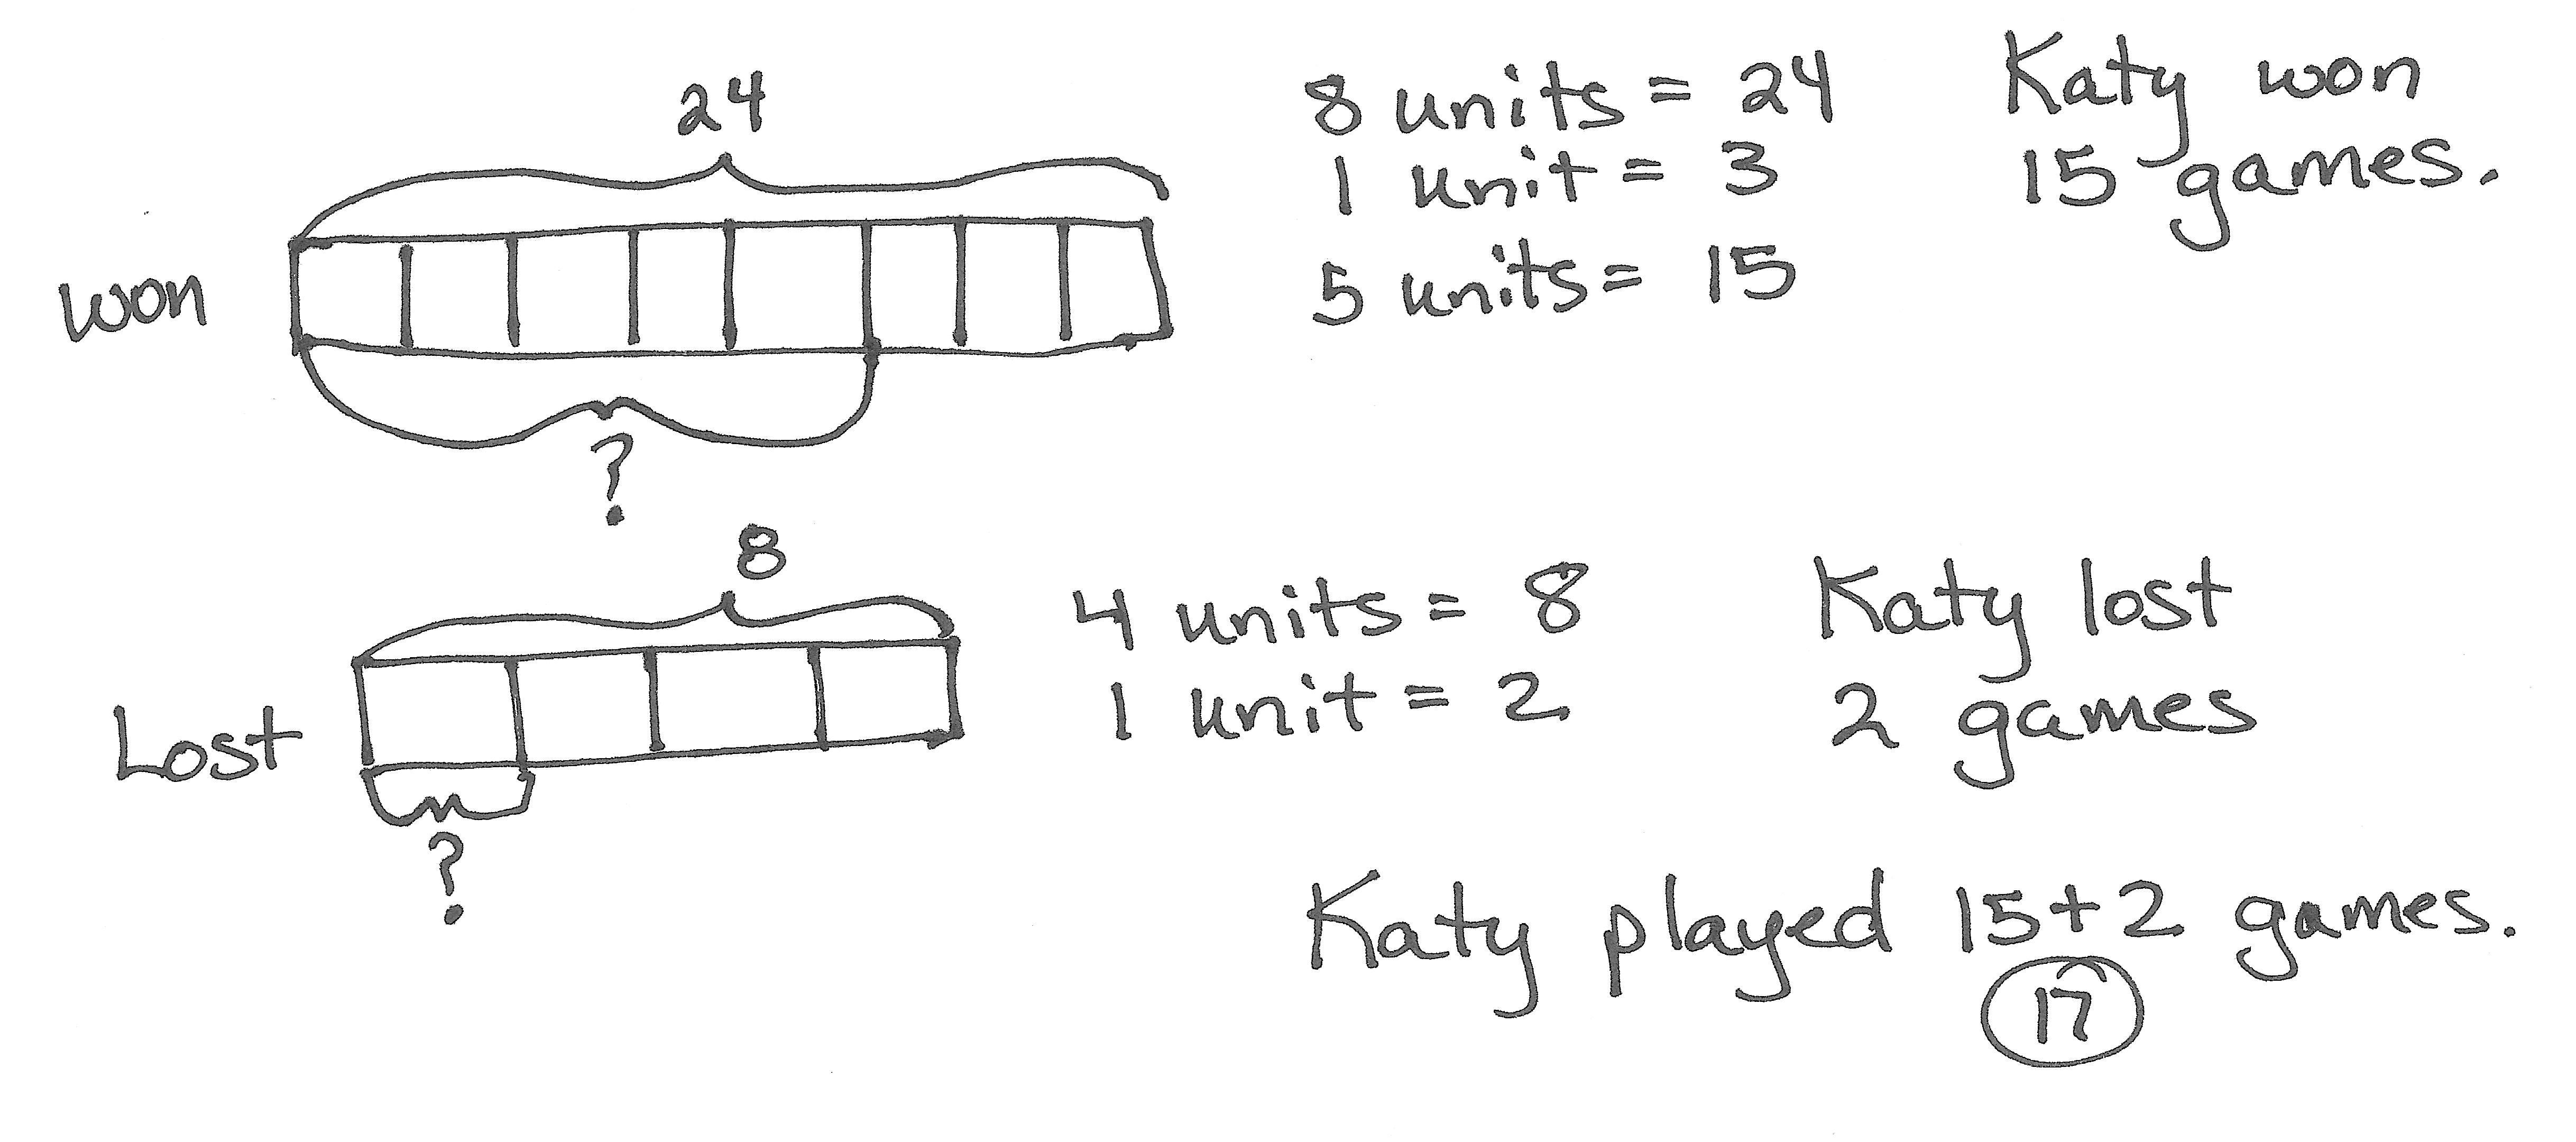 24
8 units = 24
1 unit = 3
5 units = 15
Katy won
15 games.
won
?
8
4 units = 8
1 unit = 2
Katy lost
2 games
Lost
?
Katy played 15+2 games.
17